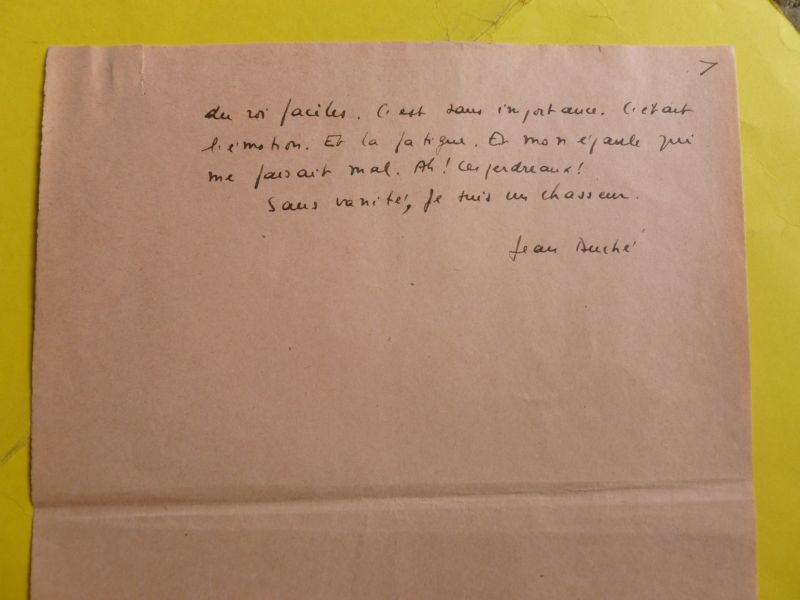 7
du roi faciles. C'est sans importance. C'était
l'émotion. Et la fatigue. Et mon épaule qui
me faisait mal. Ah! Ces perdreaux!
Sans vanité, je suis un chasseur.
Jean Duché